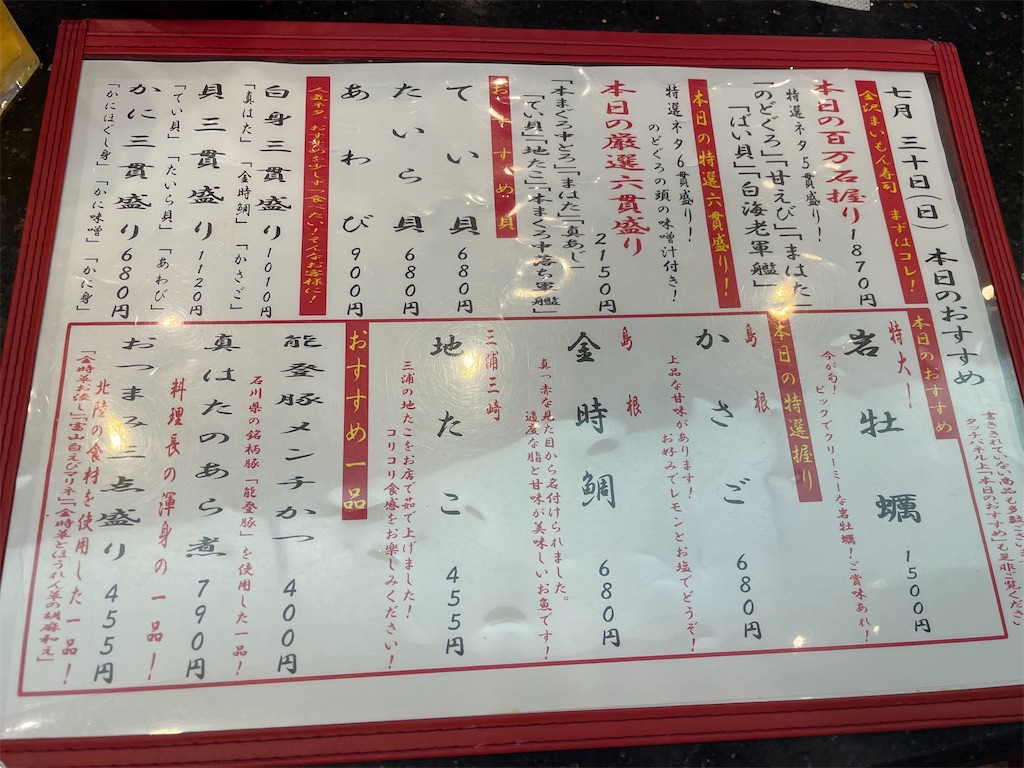 七月 三十日(日) 本日のおすすめ
タッチパネル上「本日のおすすめ」も是非ご覧ください
金沢まいもん寿司 まずはコレ!
本日の百万石握り1870円
特選ネタ5貫盛り!
「のどぐろ」「甘えび」「まはた」
「ばい貝」「白海老軍艦」
本日の特選六貫盛り!
特選ネタ6貫盛り!
のどぐろの頭の味噌汁付き!
本日の厳選六貫盛り
2150円
「本まぐろ中とろ」「まはた」「真あじ」
「てい貝」「地たこ」「本まぐろ中落ち軍艦」
おすすめ貝
てい貝 680円
たいら貝 680円
あわび 900円
人気ネタ、おすすめを少しずつ食べたい!そんなお客様に!
白身三貫盛り1010円
「真はた」「金時鯛」「かさご」
貝三貫盛り 1120円
「てい貝」「たいら貝」「あわび」
かに三貫盛り680円
「かにほぐし身」「かに味噌」「かに身」
本日のおすすめ
特大!
岩牡蠣 1500円
今が旬! ビックでクリーミーな岩牡蠣!ご賞味あれ!
本日の特選握り
島根
かさご 680円
上品な甘味があります!
お好みでレモンとお塩でどうぞ!
島根
金時鯛 680円
真っ赤な見た目から名付けられました。
適度な脂と甘味が美味しいお魚です!
三浦三崎
地たこ 455円
三浦の地たこをお店で茹で上げました!
コリコリ食感をお楽しみください!
おすすめ一品
能登豚メンチかつ 400円
石川県の銘柄豚「能登豚」を使用した一品!
真はたのあら煮 790円
料理長の渾身の一品!
おつまみ三点盛り 455円
北陸の食材を使用した一品!
「金時草お浸し」「富山白えびマリネ」「金時草とほうれん草の胡麻和え」